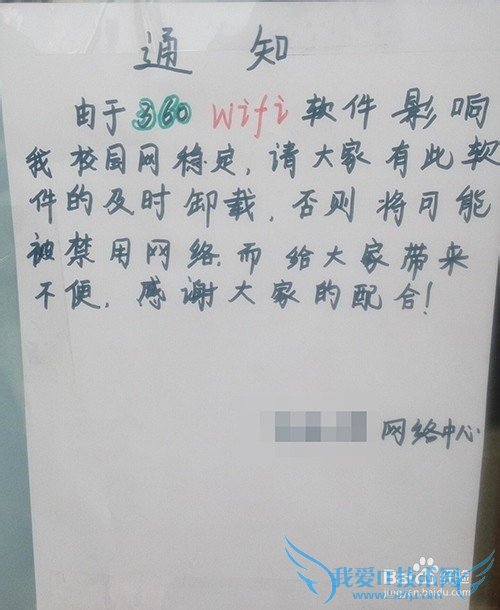 通知
由于360 Wifi软件影响
我校园网稳定,请大家有此软
件的及时卸载,否则将可能
被禁用网络.而给大家带来
不便.感谢大家的配合!
网络中心
我爱IT技术网
Baidu经验
jingyan.baidu.com